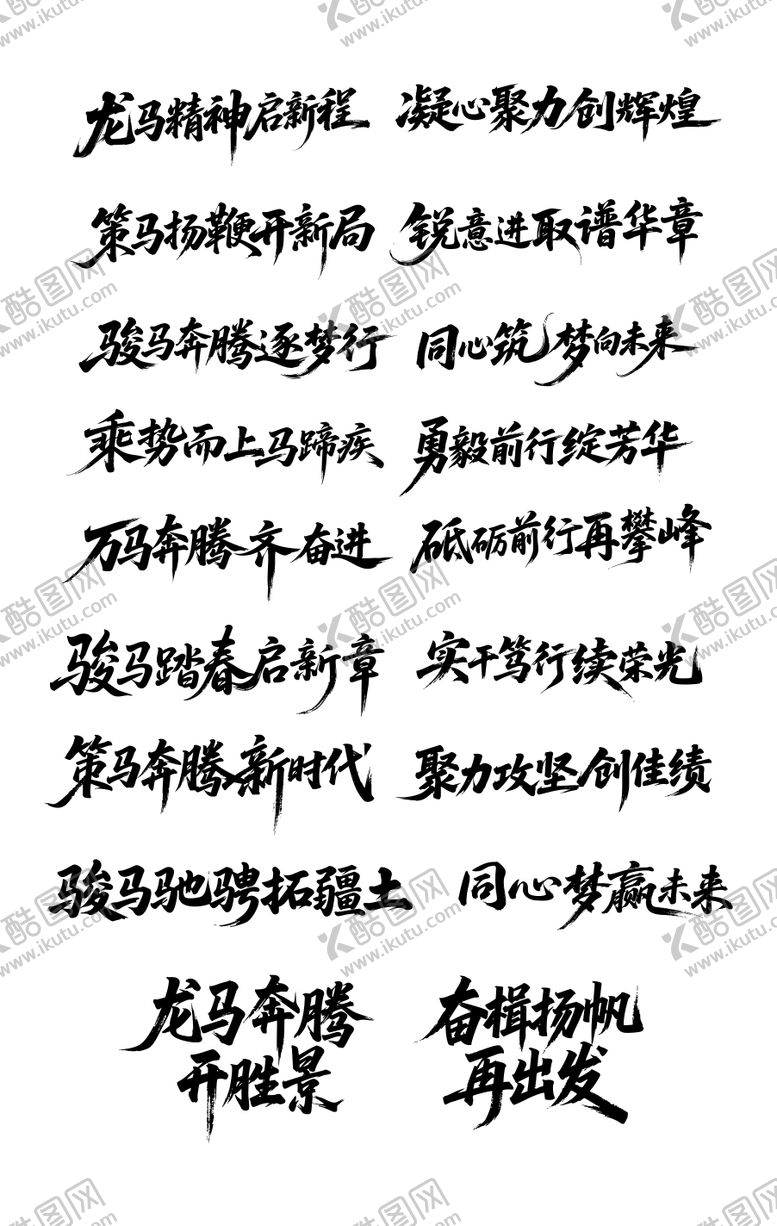 龙马精神启新程 凝心聚力创辉煌
策马扬鞭开新局 锐意进取谱华章
骏马奔腾逐梦行 同心筑梦向未来
乘势而上马蹄疾 勇毅前行绽芳华
万马奔腾齐奋进 砥砺前行再攀峰
骏马踏春启新章 实干笃行续荣光
策马奔腾新时代 聚力攻坚创佳绩
骏马驰骋拓疆土 同心梦赢未来
龙马奔腾 奋楫扬帆
开胜景 再出发
酷图网
www.ikutu.com